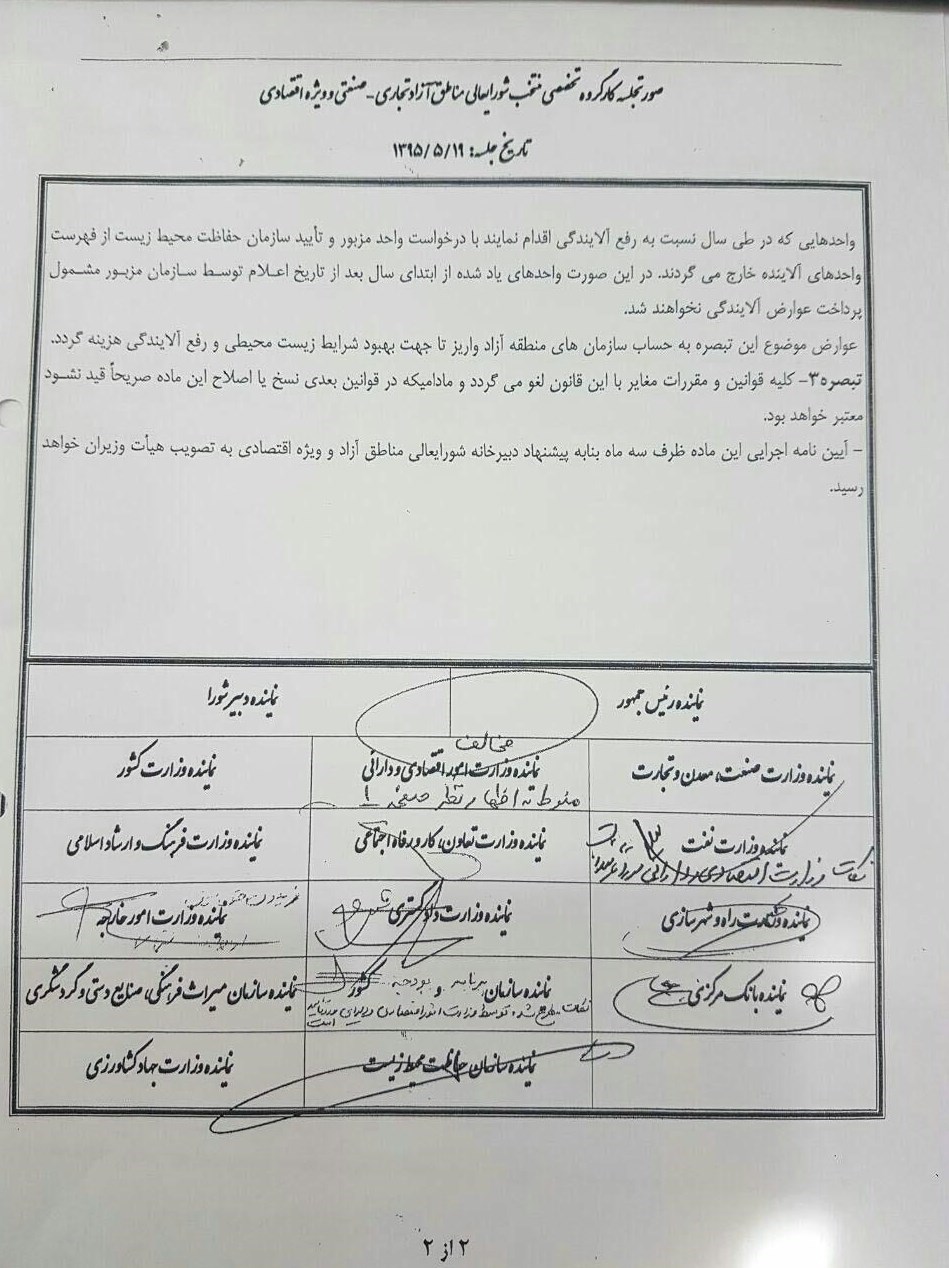 صورتجلسه کارگروه تخصصی منتخب شورایعالی مناطق آزاد تجاری - صنعتی و ویژه اقتصادی
تاریخ جلسه: ۱۳۹۵/۵/۱۹
واحدهایی که در طی سال نسبت به رفع آلایندگی اقدام نمایند با درخواست واحد مزبور و تأیید سازمان حفاظت محیط زیست از فهرست
واحدهای آلاینده خارج می گردند. در این صورت واحدهای یاد شده از ابتدای سال بعد از تاریخ اعلام توسط سازمان مزبور مشمول
پرداخت عوارض آلایندگی نخواهند شد.
عوارض موضوع این تبصره به حساب سازمان های منطقه آزاد واریز تا جهت بهبود شرایط زیست محیطی و رفع آلایندگی هزینه گردد.
تبصره۳- کلیه قوانین و مقررات مغایر با این قانون لغو می گردد و مادامیکه در قوانین بعدی نسخ یا اصلاح این ماده صریحاً قید نشود
معتبر خواهد بود.
- آیین نامه اجرایی این ماده ظرف سه ماه بنابه پیشنهاد دبیرخانه شورایعالی مناطق آزاد و ویژه اقتصادی به تصویب هیأت وزیران خواهد
رسید.
نماینده رئیس جمهور
نماینده دبیر شورا
نماینده وزارت صنعت، معدن و تجارت
مخالف
نماینده وزارت امور اقتصادی و دارائی
منوط به اظهار نظر صفحه ۱
نماینده وزارت کشور
نماینده وزارت نفت
نکات وزارت اقتصادی و دارائی
نماینده وزارت تعاون، کار و رفاه اجتماعی
نماینده وزارت فرهنگ و ارشاد اسلامی
نماینده وزارت راه و شهرسازی
نماینده وزارت دادگستری
نماینده وزارت امور خارجه
نماینده بانک مرکزی
نماینده سازمان برنامه و بودجه کشور
نکات مطرح شده توسط وزارت امور اقتصادی و دارایی
است
نماینده سازمان میراث فرهنگی، صنایع دستی و گردشگری
نماینده سازمان حفاظت محیط زیست
نماینده وزارت جهاد کشاورزی
۲ از ۲